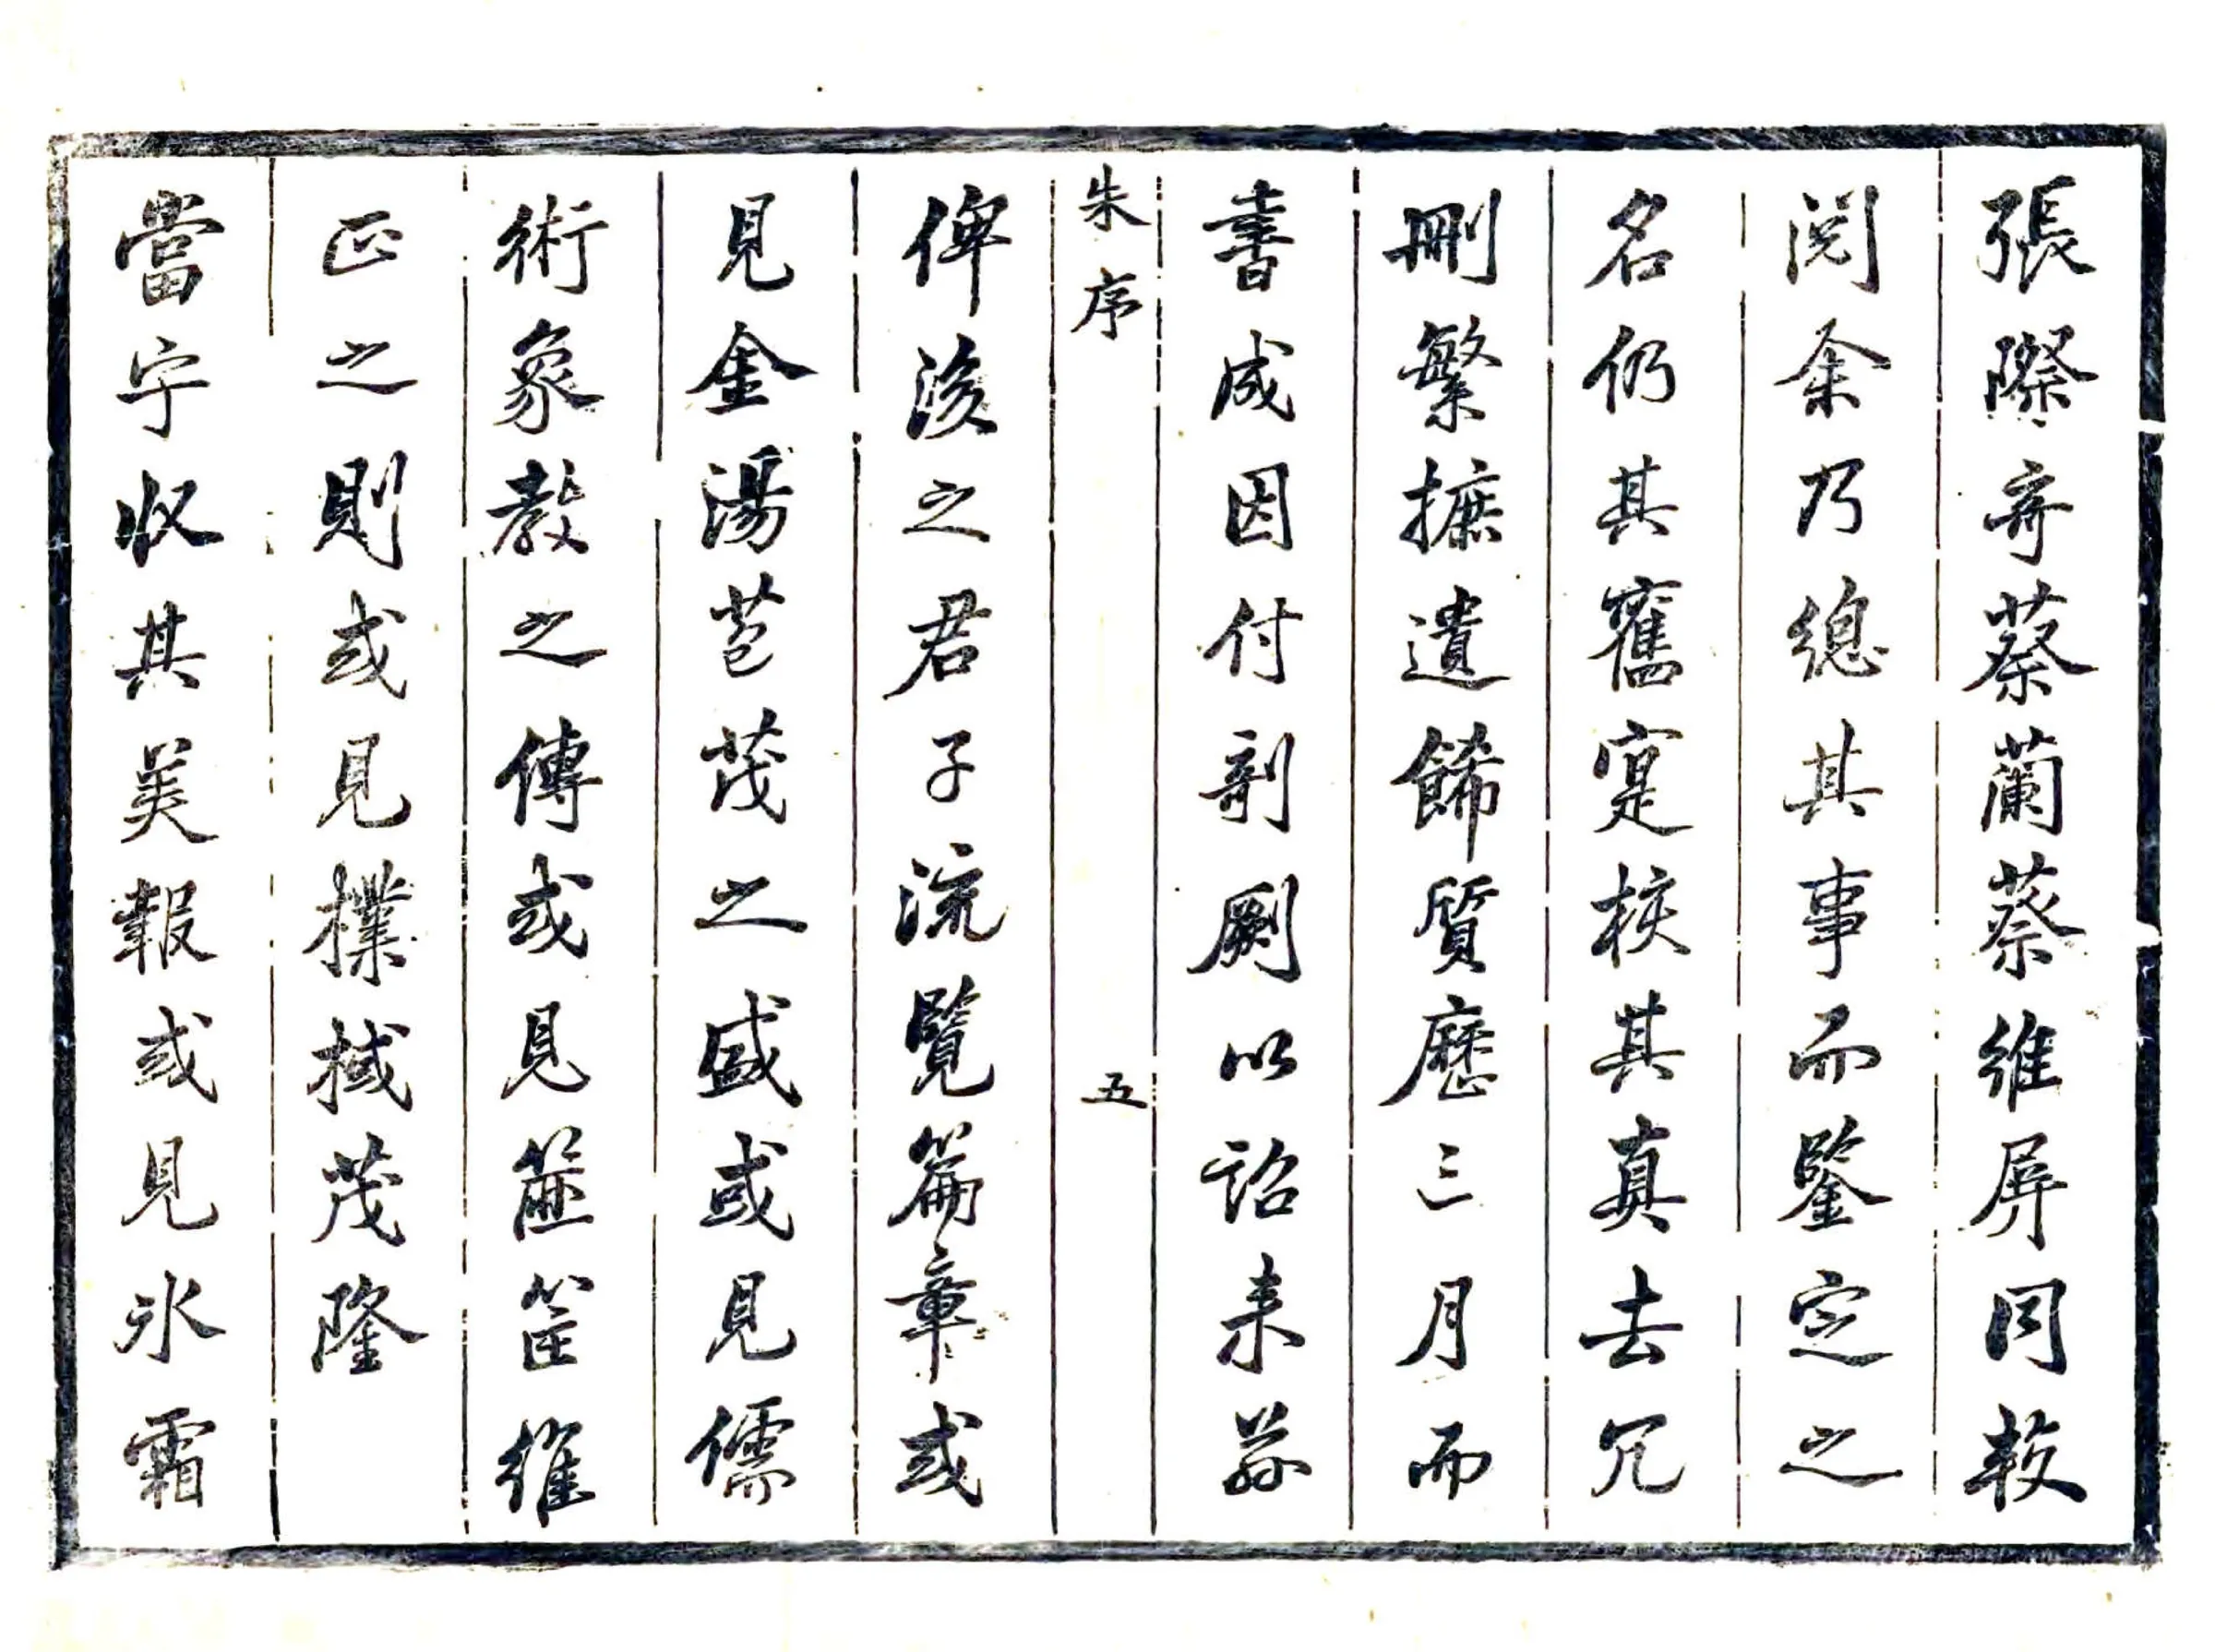 張際奇蔡蘭蔡維屏同較
閱余乃總其事而鑒定之
名仍其舊寔核其真去冗
刪繁摭遺餙質歷三月而
書成因付剞劂以詔來茲
朱序 五
俾後之君子流覽篇章或
見金湯苞茂之盛或見儒
術象教之傳或見筐筐維
正之則或見樸棫茂隆
當宁収其美報或見氷霜